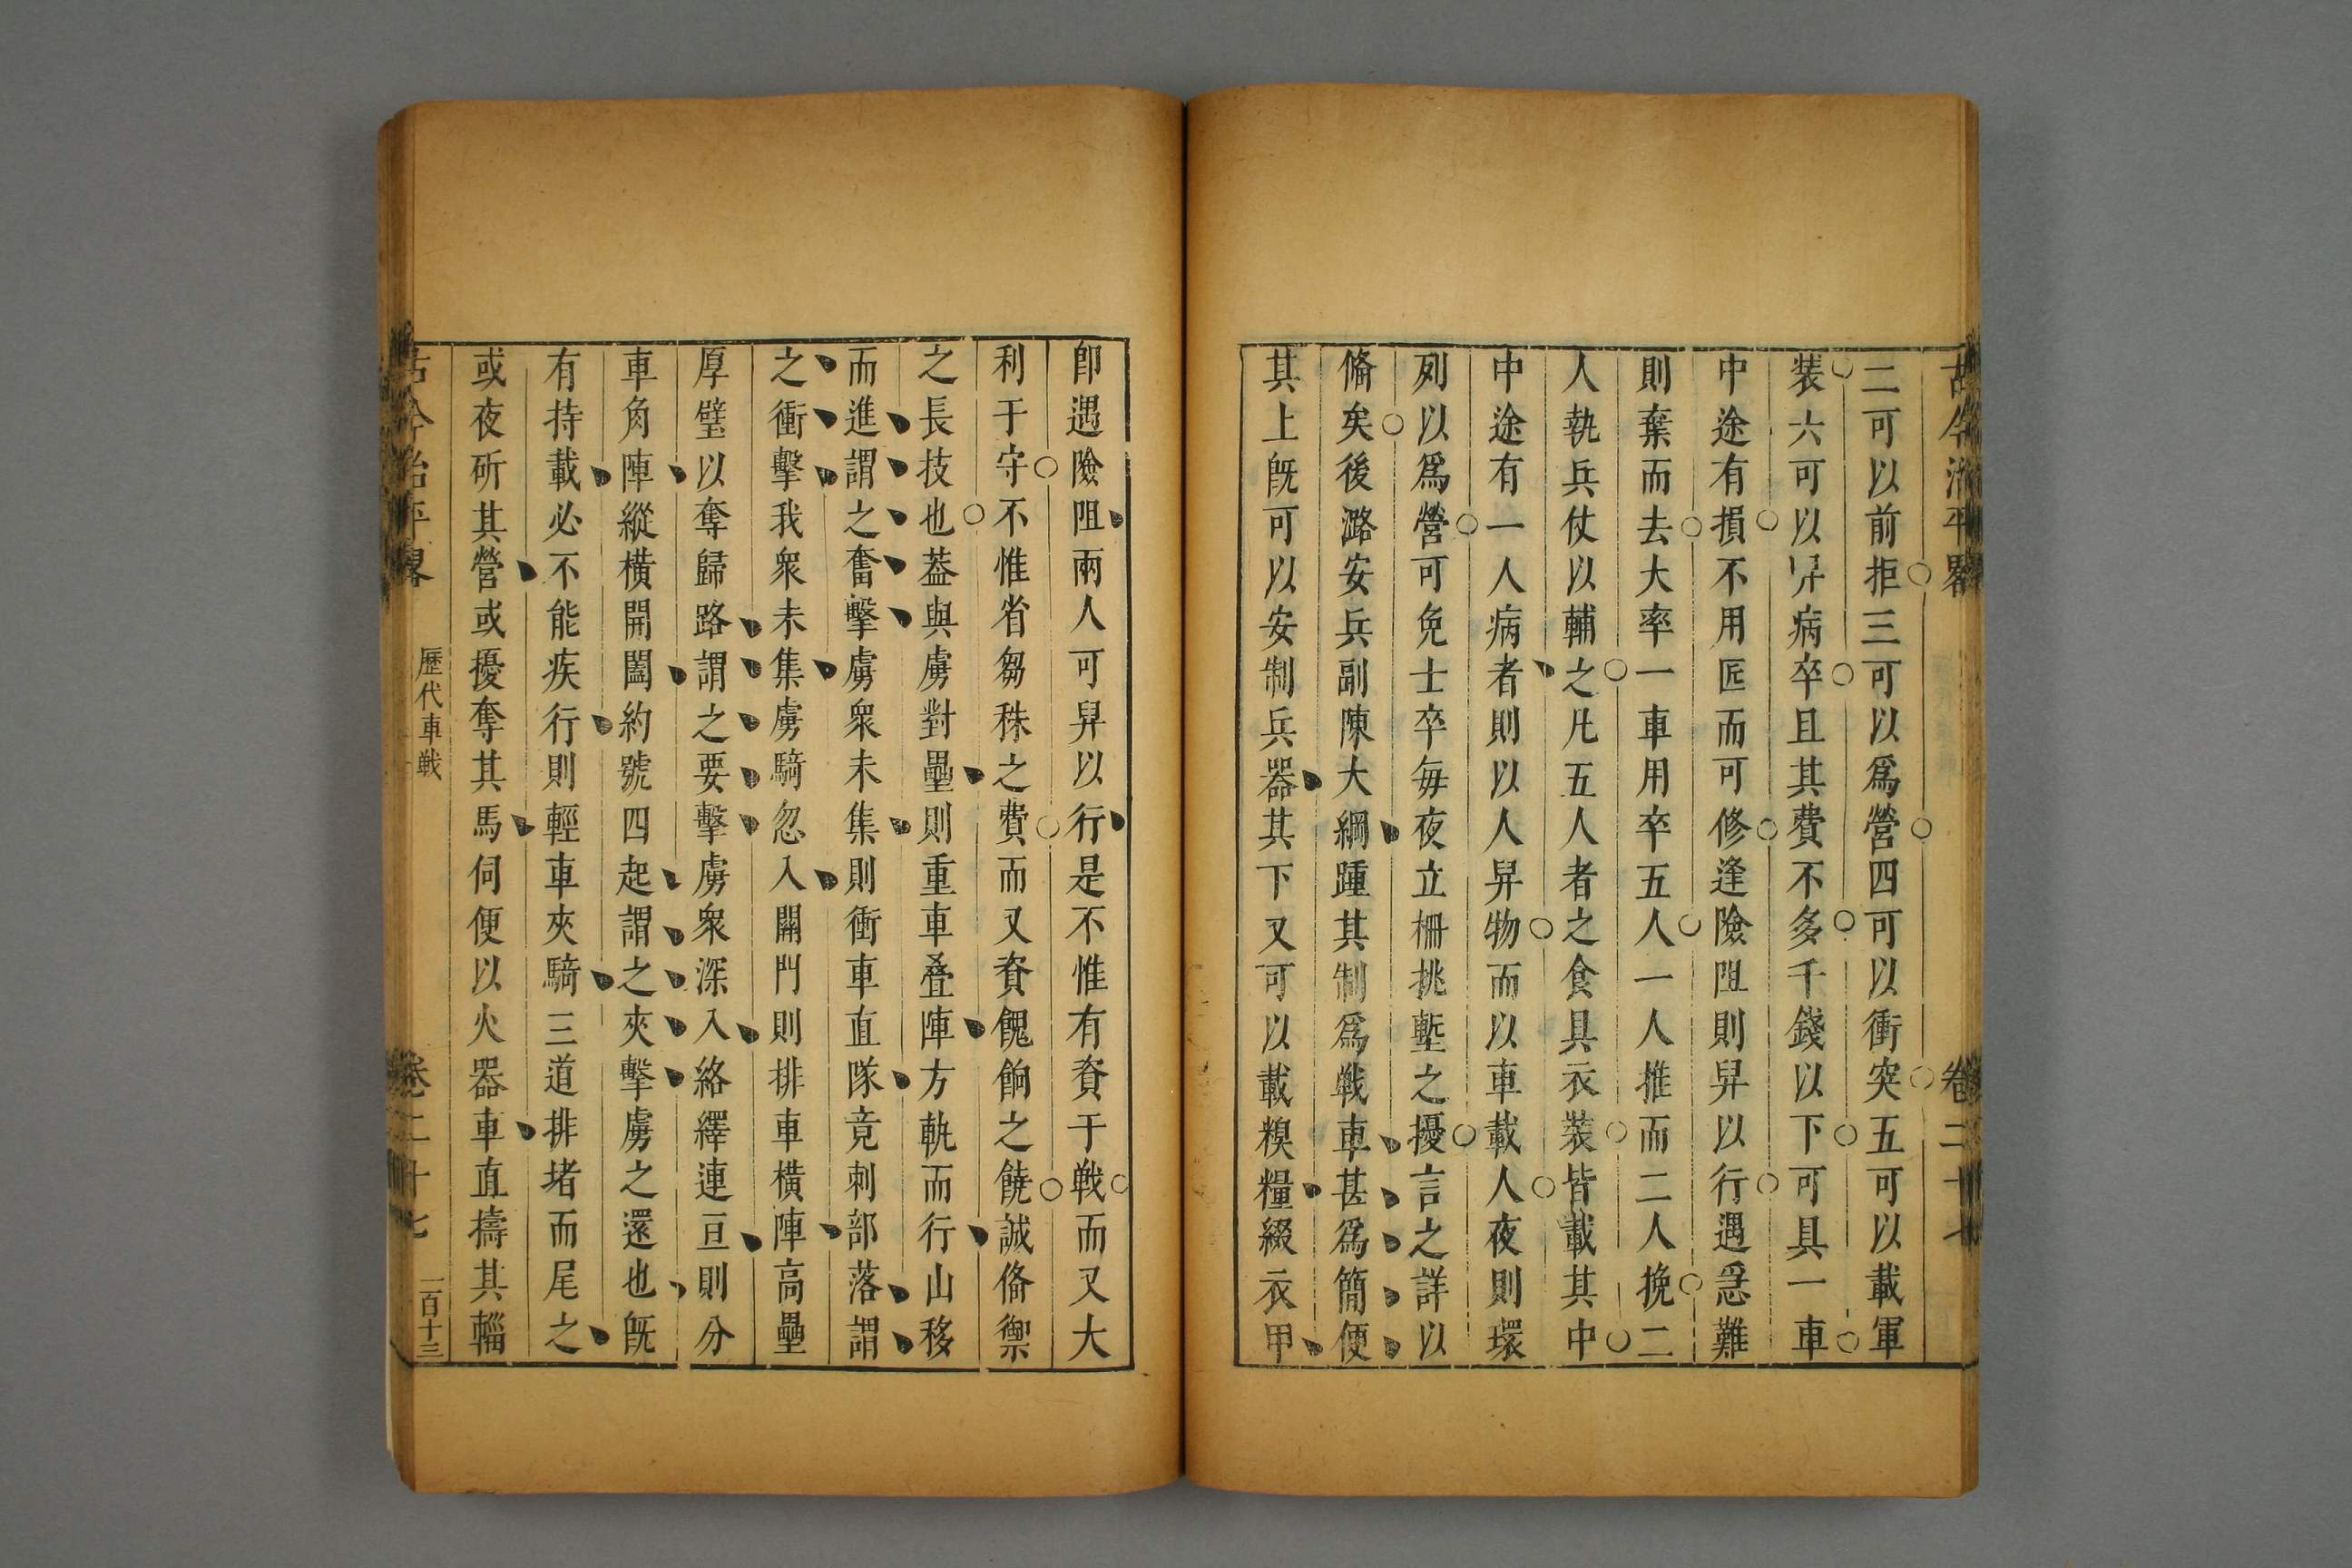 古今治平畧 卷二十七
二可以前拒三可以爲營四可以衝突五可以載軍
裝六可以舁病卒且其費不多千錢以下可具一車
中途有損不用匠而可修逢險阻則舁以行遇急難
則棄而去大率一車用卒五人一人推而二人挽二
人執兵仗以輔之凡五人者之食具衣裝皆載其中
中途有一人病者則以人舁物而以車載人夜則環
列以爲營可免士卒每夜立柵挑塹之擾言之詳以
備矣後潞安兵副陳大綱踵其制爲戰車甚爲簡便
其上旣可以安制兵器其下又可以載糗糧綴衣甲
卽遇險阻兩人可舁以行是不惟有資于戰而又大
利于守不惟省芻秣之費而又資餽餉之饒誠偹禦
之長技也葢與虜對壘則重車叠陣方軌而行山移
而進謂之奮擊虜衆未集則衝車直隊竟刺部落謂
之衝擊我衆未集虜騎忽入闢門則排車橫陣高壘
厚壁以奪歸路謂之要擊虜衆深入絡繹連亘則分
車角陣縱橫開闔約號四起謂之夾擊虜之還也旣
有持載必不能疾行則輕車夾騎三道排堵而尾之
或夜斫其營或擾奪其馬伺便以火器車直擣其輜
古今治平畧 歷代車戰 卷二十七 一百十三